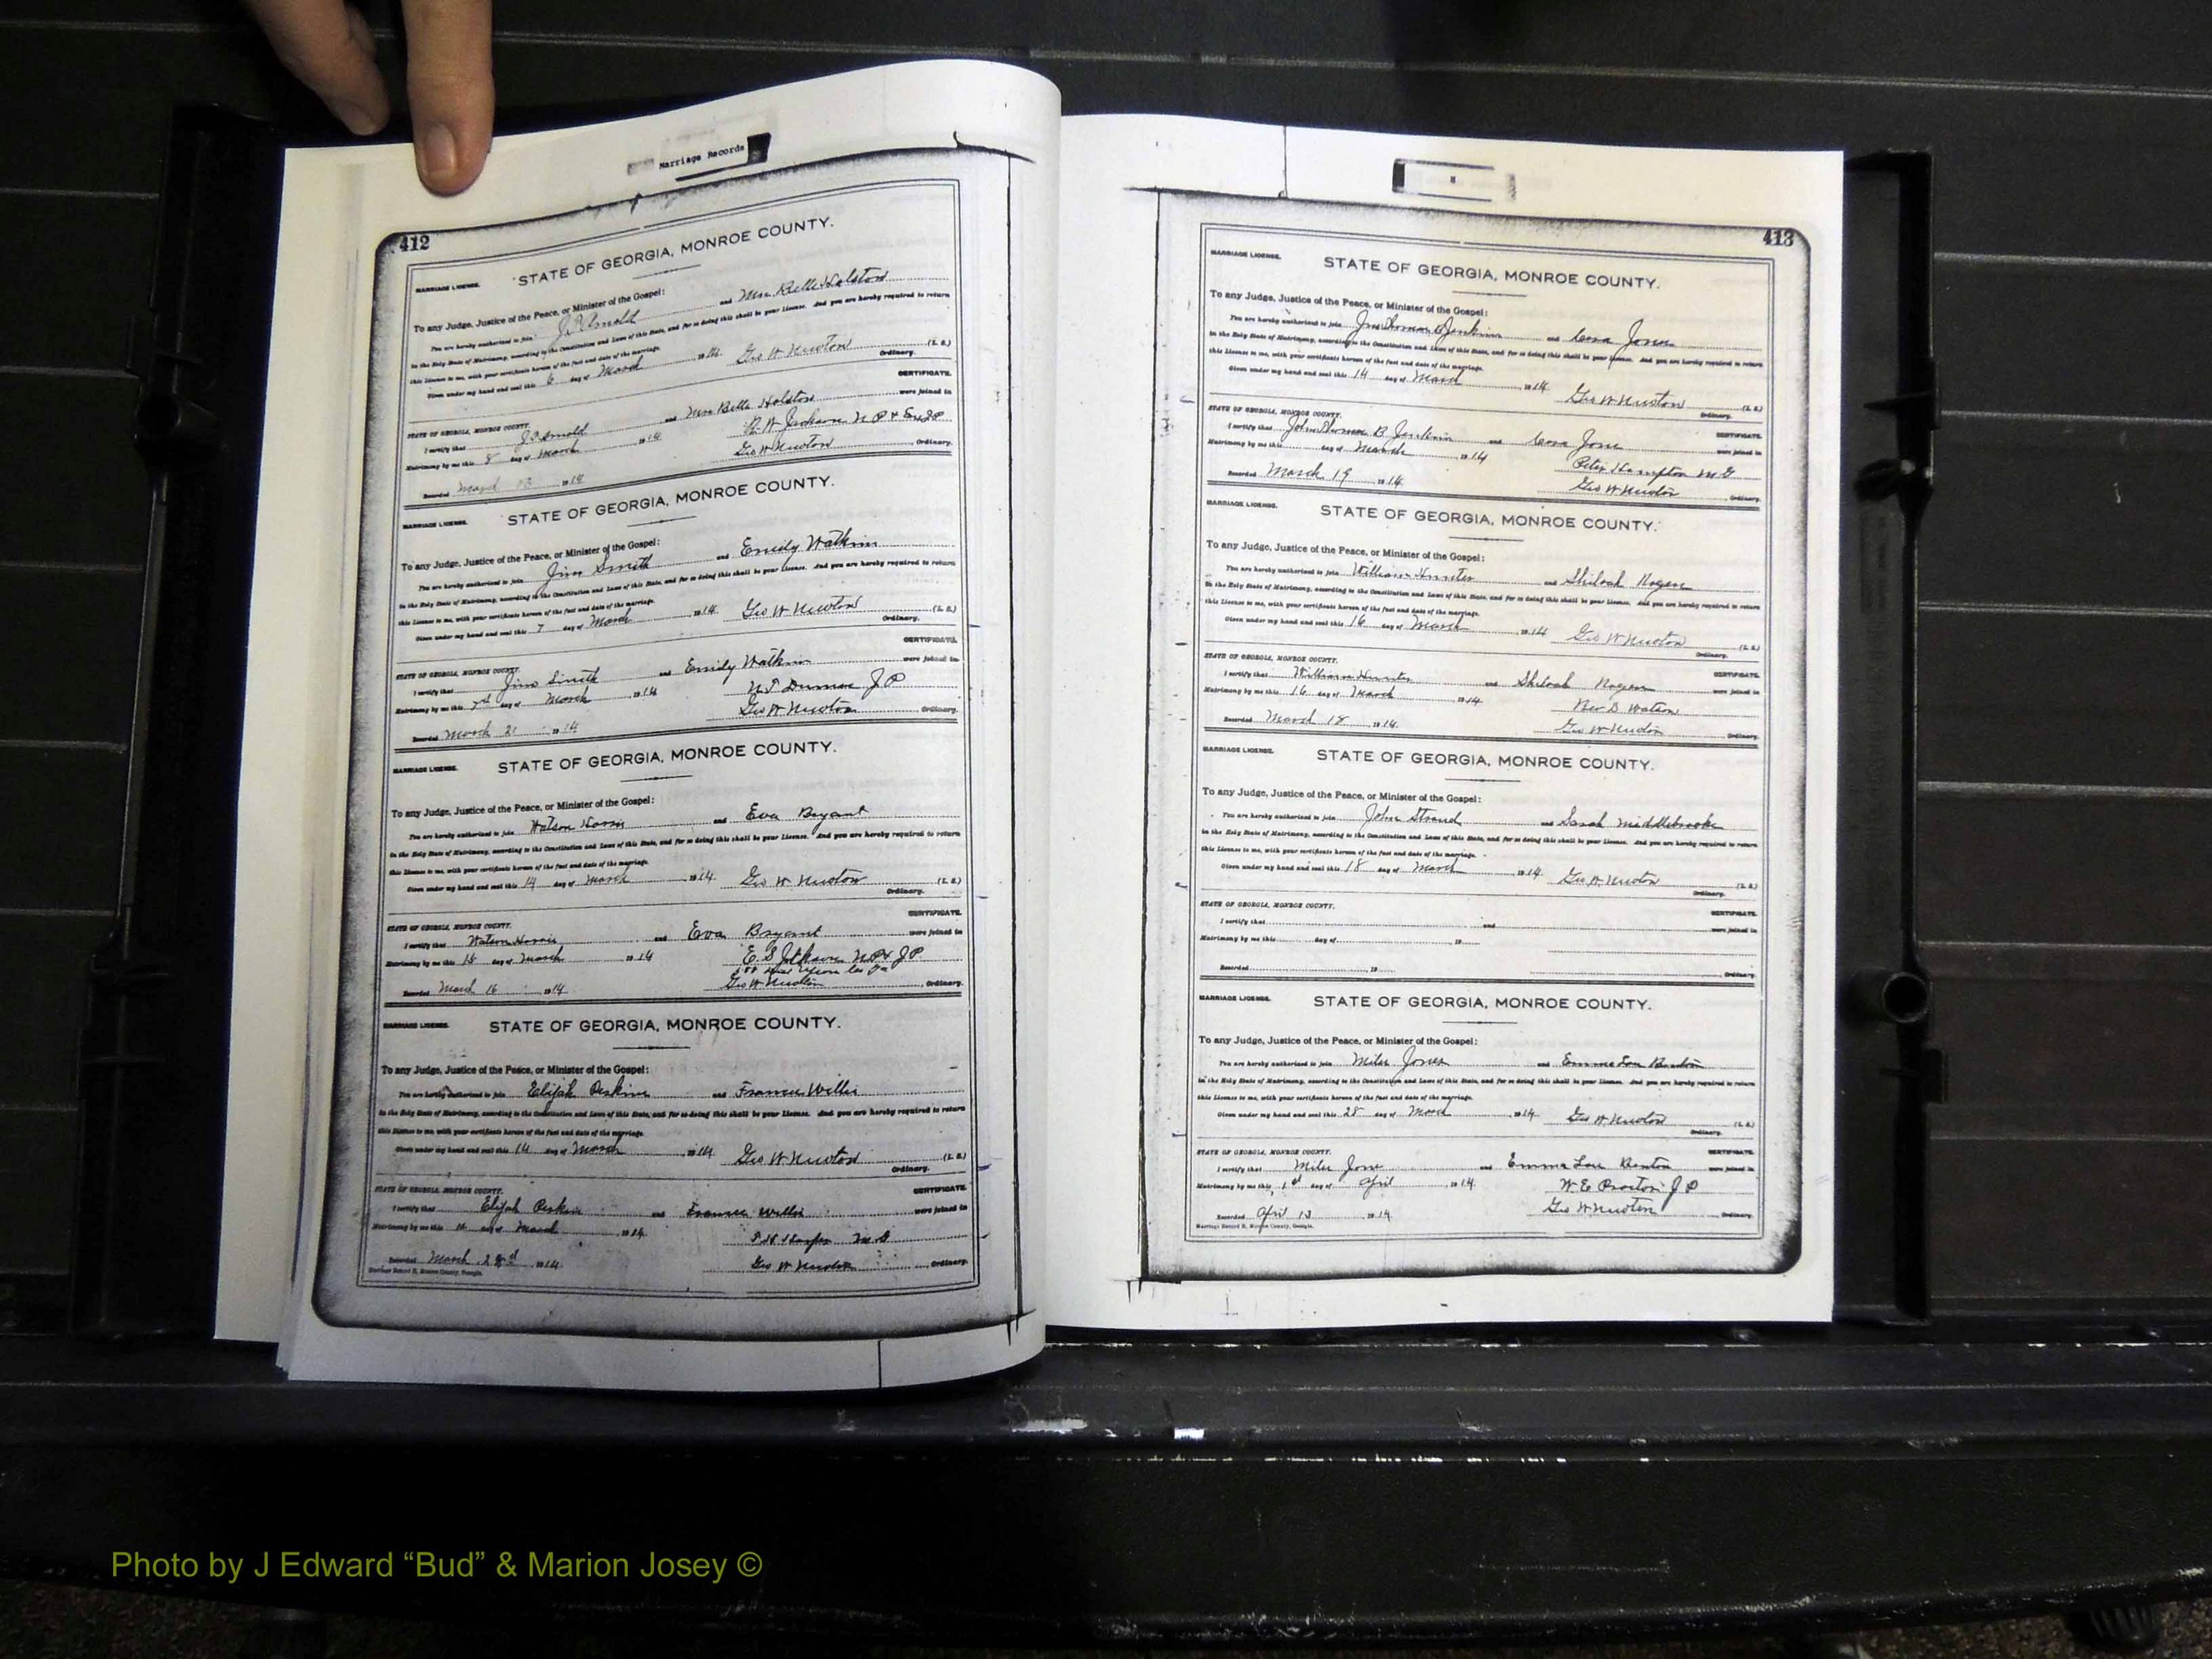 Marriage Records
412
MARRIAGE LICENSE. STATE OF GEORGIA, MONROE COUNTY.
To any Judge, Justice of the Peace, or Minister of the Gospel:
You are hereby authorized to join J. Arnold and Mrs Belle Holston
in the Holy State of Matrimony, according to the Constitution and Laws of this State, and for so doing this shall be your License. And you are hereby required to return
this License to me, with your certificate hereon of the fact and date of the marriage.
Given under my hand and seal this 6 day of March 1914. Geo W Newton (L. S.)
Ordinary.
STATE OF GEORGIA, MONROE COUNTY. CERTIFICATE.
I certify that Arnold and Mrs Belle Holston were joined in
Matrimony by me this 8 day of March 1914 W Jackson N P & Ex J P
Recorded March 1914 Geo W Newton, Ordinary.
MARRIAGE LICENSE. STATE OF GEORGIA, MONROE COUNTY.
To any Judge, Justice of the Peace, or Minister of the Gospel:
You are hereby authorized to join Jim Smith and Emily Watkins
in the Holy State of Matrimony, according to the Constitution and Laws of this State, and for so doing this shall be your License. And you are hereby required to return
this License to me, with your certificate hereon of the fact and date of the marriage.
Given under my hand and seal this 7 day of March 1914. Geo W Newton (L. S.)
Ordinary.
STATE OF GEORGIA, MONROE COUNTY. CERTIFICATE.
I certify that Jim Smith and Emily Watkins were joined in
Matrimony by me this 7th day of March 1914 J P
Recorded March 21 1914 Geo W Newton, Ordinary.
MARRIAGE LICENSE. STATE OF GEORGIA, MONROE COUNTY.
To any Judge, Justice of the Peace, or Minister of the Gospel:
You are hereby authorized to join Watson Harris and Eva Bryant
in the Holy State of Matrimony, according to the Constitution and Laws of this State, and for so doing this shall be your License. And you are hereby required to return
this License to me, with your certificate hereon of the fact and date of the marriage.
Given under my hand and seal this 14 day of March 1914. Geo W Newton (L. S.)
Ordinary.
STATE OF GEORGIA, MONROE COUNTY. CERTIFICATE.
I certify that Watson Harris and Eva Bryant were joined in
Matrimony by me this 15 day of March 1914 E. S. N P & J P
Recorded March 16 1914 Geo W Newton, Ordinary.
MARRIAGE LICENSE. STATE OF GEORGIA, MONROE COUNTY.
To any Judge, Justice of the Peace, or Minister of the Gospel:
You are hereby authorized to join Elijah Perkins and Frances Willis
in the Holy State of Matrimony, according to the Constitution and Laws of this State, and for so doing this shall be your License. And you are hereby required to return
this License to me, with your certificate hereon of the fact and date of the marriage.
Given under my hand and seal this 14 day of March 1914 Geo W Newton (L. S.)
Ordinary.
STATE OF GEORGIA, MONROE COUNTY. CERTIFICATE.
I certify that Elijah Perkins and Frances Willis were joined in
Matrimony by me this day of March 1914 M G
Recorded March 1914 Geo W Newton, Ordinary.
Marriage Record H, Monroe County, Georgia.
413
MARRIAGE LICENSE. STATE OF GEORGIA, MONROE COUNTY.
To any Judge, Justice of the Peace, or Minister of the Gospel:
You are hereby authorized to join Jno Thomas B Jenkins and Cora Jones
in the Holy State of Matrimony, according to the Constitution and Laws of this State, and for so doing this shall be your License. And you are hereby required to return
this License to me, with your certificate hereon of the fact and date of the marriage.
Given under my hand and seal this 14 day of March 1914. Geo W Newton (L. S.)
Ordinary.
STATE OF GEORGIA, MONROE COUNTY. CERTIFICATE.
I certify that John Thomas B Jenkins and Cora Jones were joined in
Matrimony by me this day of March 1914 Peter Hampton M G
Recorded March 19 1914. Geo W Newton, Ordinary.
MARRIAGE LICENSE. STATE OF GEORGIA, MONROE COUNTY.
To any Judge, Justice of the Peace, or Minister of the Gospel:
You are hereby authorized to join William Hunter and Shiloah Rogers
in the Holy State of Matrimony, according to the Constitution and Laws of this State, and for so doing this shall be your License. And you are hereby required to return
this License to me, with your certificate hereon of the fact and date of the marriage.
Given under my hand and seal this 16 day of March 1914 Geo W Newton (L. S.)
Ordinary.
STATE OF GEORGIA, MONROE COUNTY. CERTIFICATE.
I certify that William Hunter and Shiloah Rogers were joined in
Matrimony by me this 16 day of March 1914 Rev D Watson
Recorded March 18 1914. Geo W Newton Ordinary.
MARRIAGE LICENSE. STATE OF GEORGIA, MONROE COUNTY.
To any Judge, Justice of the Peace, or Minister of the Gospel:
You are hereby authorized to join John Stroud and Sarah Middlebrooks
in the Holy State of Matrimony, according to the Constitution and Laws of this State, and for so doing this shall be your License. And you are hereby required to return
this License to me, with your certificate hereon of the fact and date of the marriage.
Given under my hand and seal this 18 day of March 1914 Geo W Newton (L. S.)
Ordinary.
STATE OF GEORGIA, MONROE COUNTY. CERTIFICATE.
I certify that and were joined in
Matrimony by me this day of 19
Recorded 19 Ordinary.
MARRIAGE LICENSE. STATE OF GEORGIA, MONROE COUNTY.
To any Judge, Justice of the Peace, or Minister of the Gospel:
You are hereby authorized to join Miles Jones and Emma Lou Benton
in the Holy State of Matrimony, according to the Constitution and Laws of this State, and for so doing this shall be your License. And you are hereby required to return
this License to me, with your certificate hereon of the fact and date of the marriage.
Given under my hand and seal this 28 day of March 1914. Geo W Newton (L. S.)
Ordinary.
STATE OF GEORGIA, MONROE COUNTY. CERTIFICATE.
I certify that Miles Jones and Emma Lou Benton were joined in
Matrimony by me this day of April 1914 W. E. Proctor J P
Recorded April 13 1914. Geo W Newton Ordinary.
Marriage Record H, Monroe County, Georgia.
Photo by J Edward “Bud” & Marion Josey ©